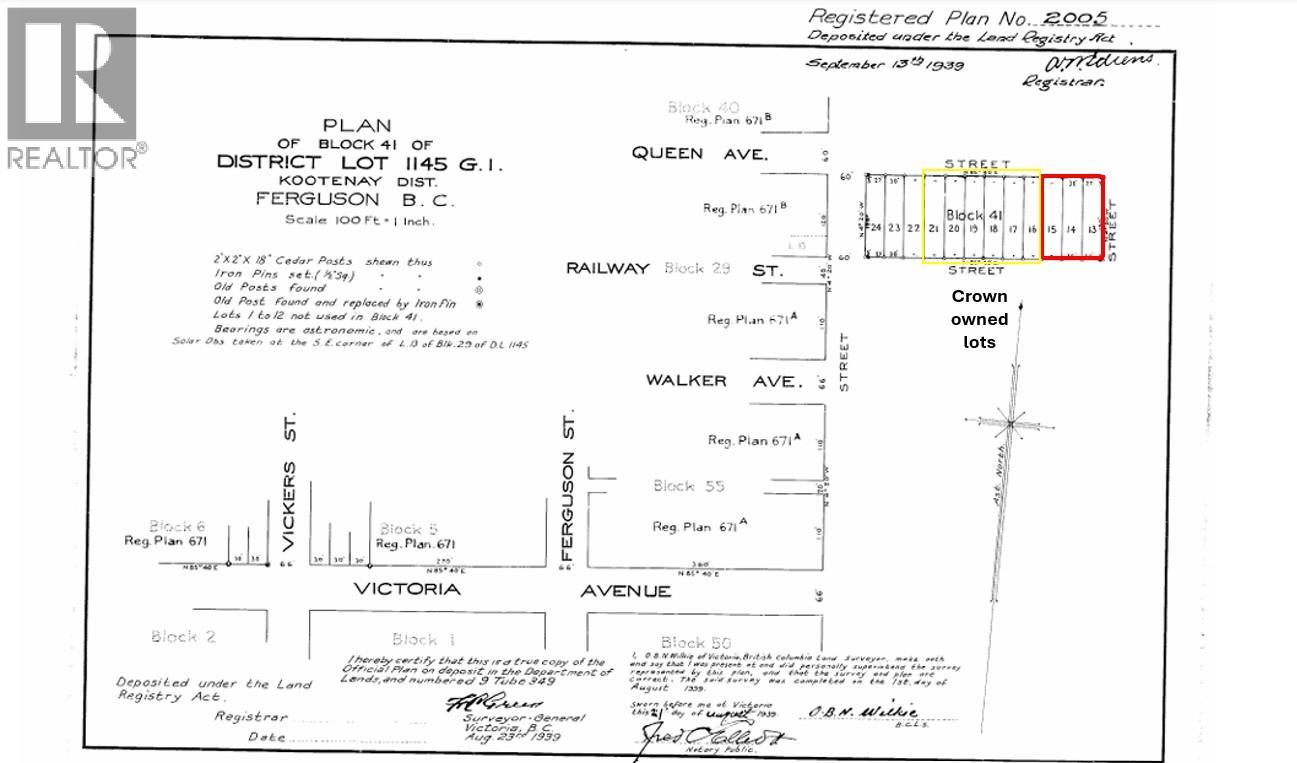 Registered Plan No. 2005
Deposited under the Land Registry Act.
September 13th 1939
Registrar.
REALTOR®
PLAN
OF BLOCK 41 OF
DISTRICT LOT 1145 G.1.
KOOTENAY DIST.
FERGUSON B.C.
Scale 100 Ft = 1 Inch.
2"X2"X 18" Cedar Posts shewn thus
Iron Pins set (½"Sq.) " "
Old Posts found " "
Old Post found and replaced by Iron Pin
Lots 1 to 12 not used in Block 41.
Bearings are astronomic, and are based on
Solar Obs taken at the S.E. corner of L.13 of Blk. 29 of D.L. 1145
Block 40
Reg. Plan 671B
QUEEN AVE.
60'
Reg. Plan 671B
120'
L.13
RAILWAY Block 29 ST.
Reg. Plan 671A
110'
STREET
WALKER AVE.
66'
Reg. Plan 671A
110'
Block 55
Reg. Plan 671A
110'
STREET
60'
Block 41
24 23 22 21 20 19 18 17 16 15 14 13
60'
STREET
STREET
Crown
owned
lots
Ast. North
VICKERS ST.
FERGUSON ST.
Block 6
Reg. Plan 671
30' 30'
N85°40'E
66'
Block 5
Reg. Plan. 671
30' 30' 30'
270'
N85°40'E
66'
360'
N85°40'E
VICTORIA AVENUE
66'
Block 2
Block 1
Block 50
Deposited under the Land
Registry Act.
Registrar
Date
I hereby certify that this is a true copy of the
Official Plan on deposit in the Department of
Lands, and numbered 9 Tube 349
Surveyor-General
Victoria, B.C.
Aug 23rd 1939
I, O.B.N. Wilkie of Victoria, British Columbia Land Surveyor, make oath
and say that I was present at and did personally superintend the survey
represented by this plan, and that the survey and plan are
correct. The said survey was completed on the 1st. day of
August 1939.
Sworn before me at Victoria
this 21st day of August 1939
O.B.N. Wilkie
B.C.L.S.
Notary Public.